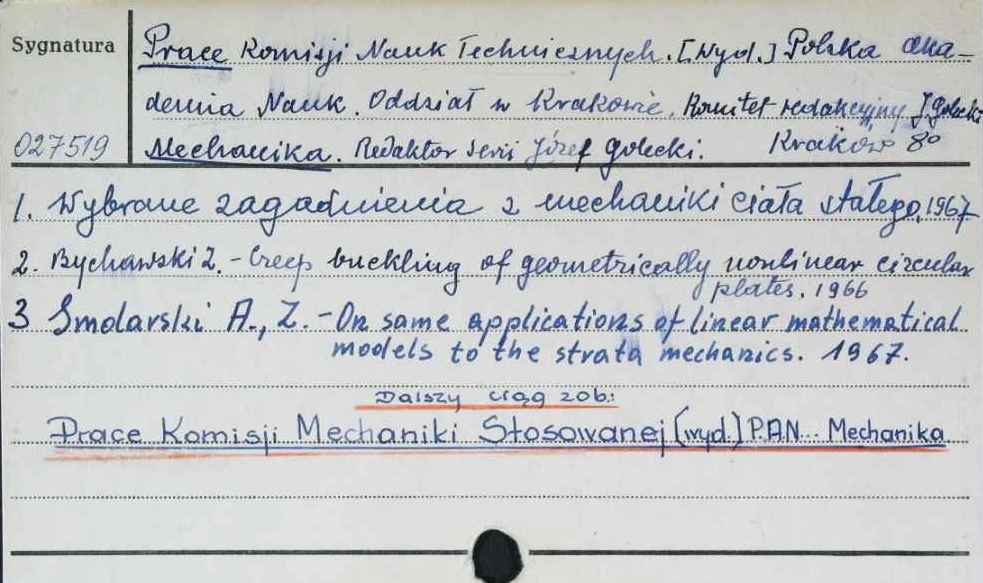 Sygnatura
Prace Komisji Nauk Technicznych. [Wyd.] Polska Aka-
demia Nauk. Oddział w Krakowie. Komitet redakcyjny J. Golecki
027519 Mechanika. Redaktor serii Józef Golecki. Kraków 8°
1. Wybrane zagadnienia z mechaniki ciała stałego, 1967
2. Bychawski Z. - Creep buckling of geometrically nonlinear circular
plates. 1966
3 Smolarski A., Z. - On same applications of linear mathematical
models to the strata mechanics. 1967.
Dalszy ciąg zob.:
Prace Komisji Mechaniki Stosowanej [wyd.] P.A.N... Mechanika